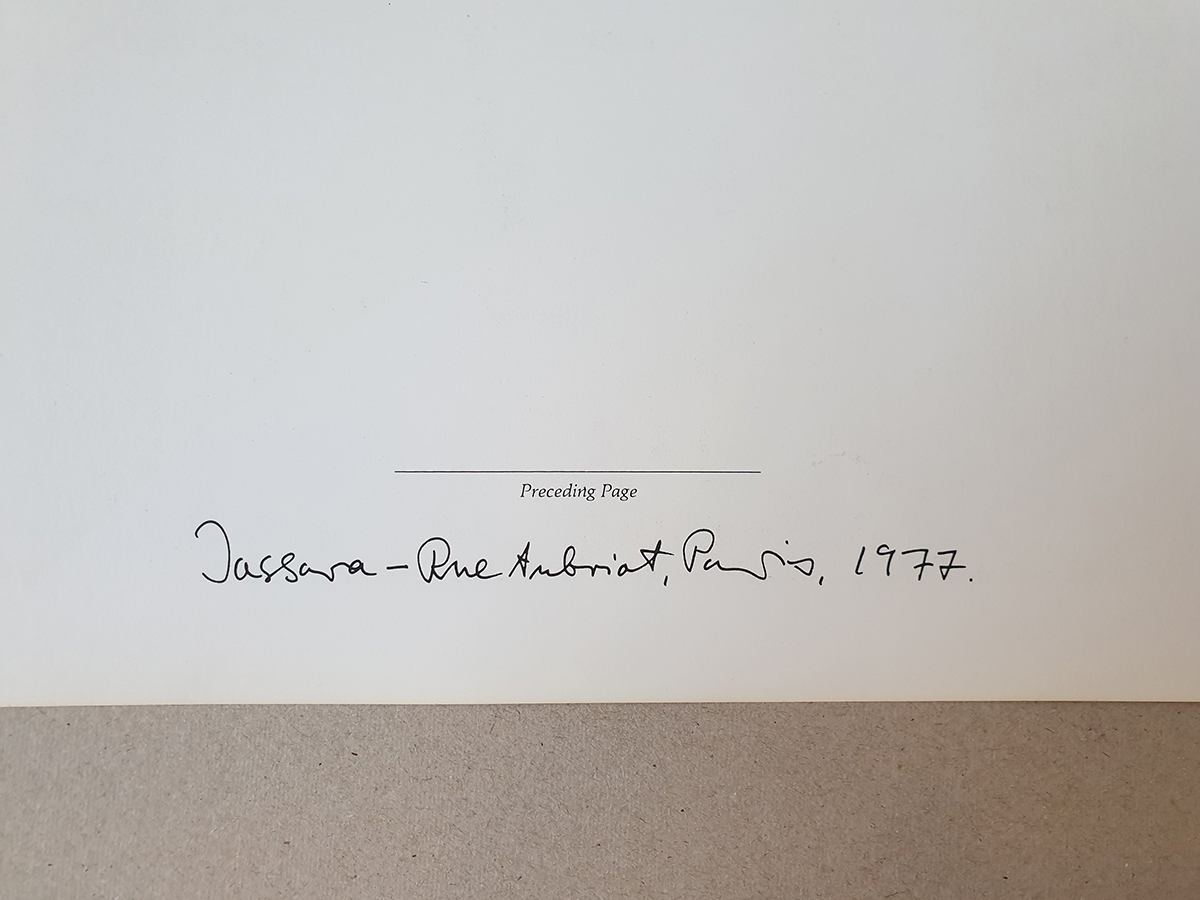 Preceding Page
Jassara – Rue Aubriot, Paris, 1977.